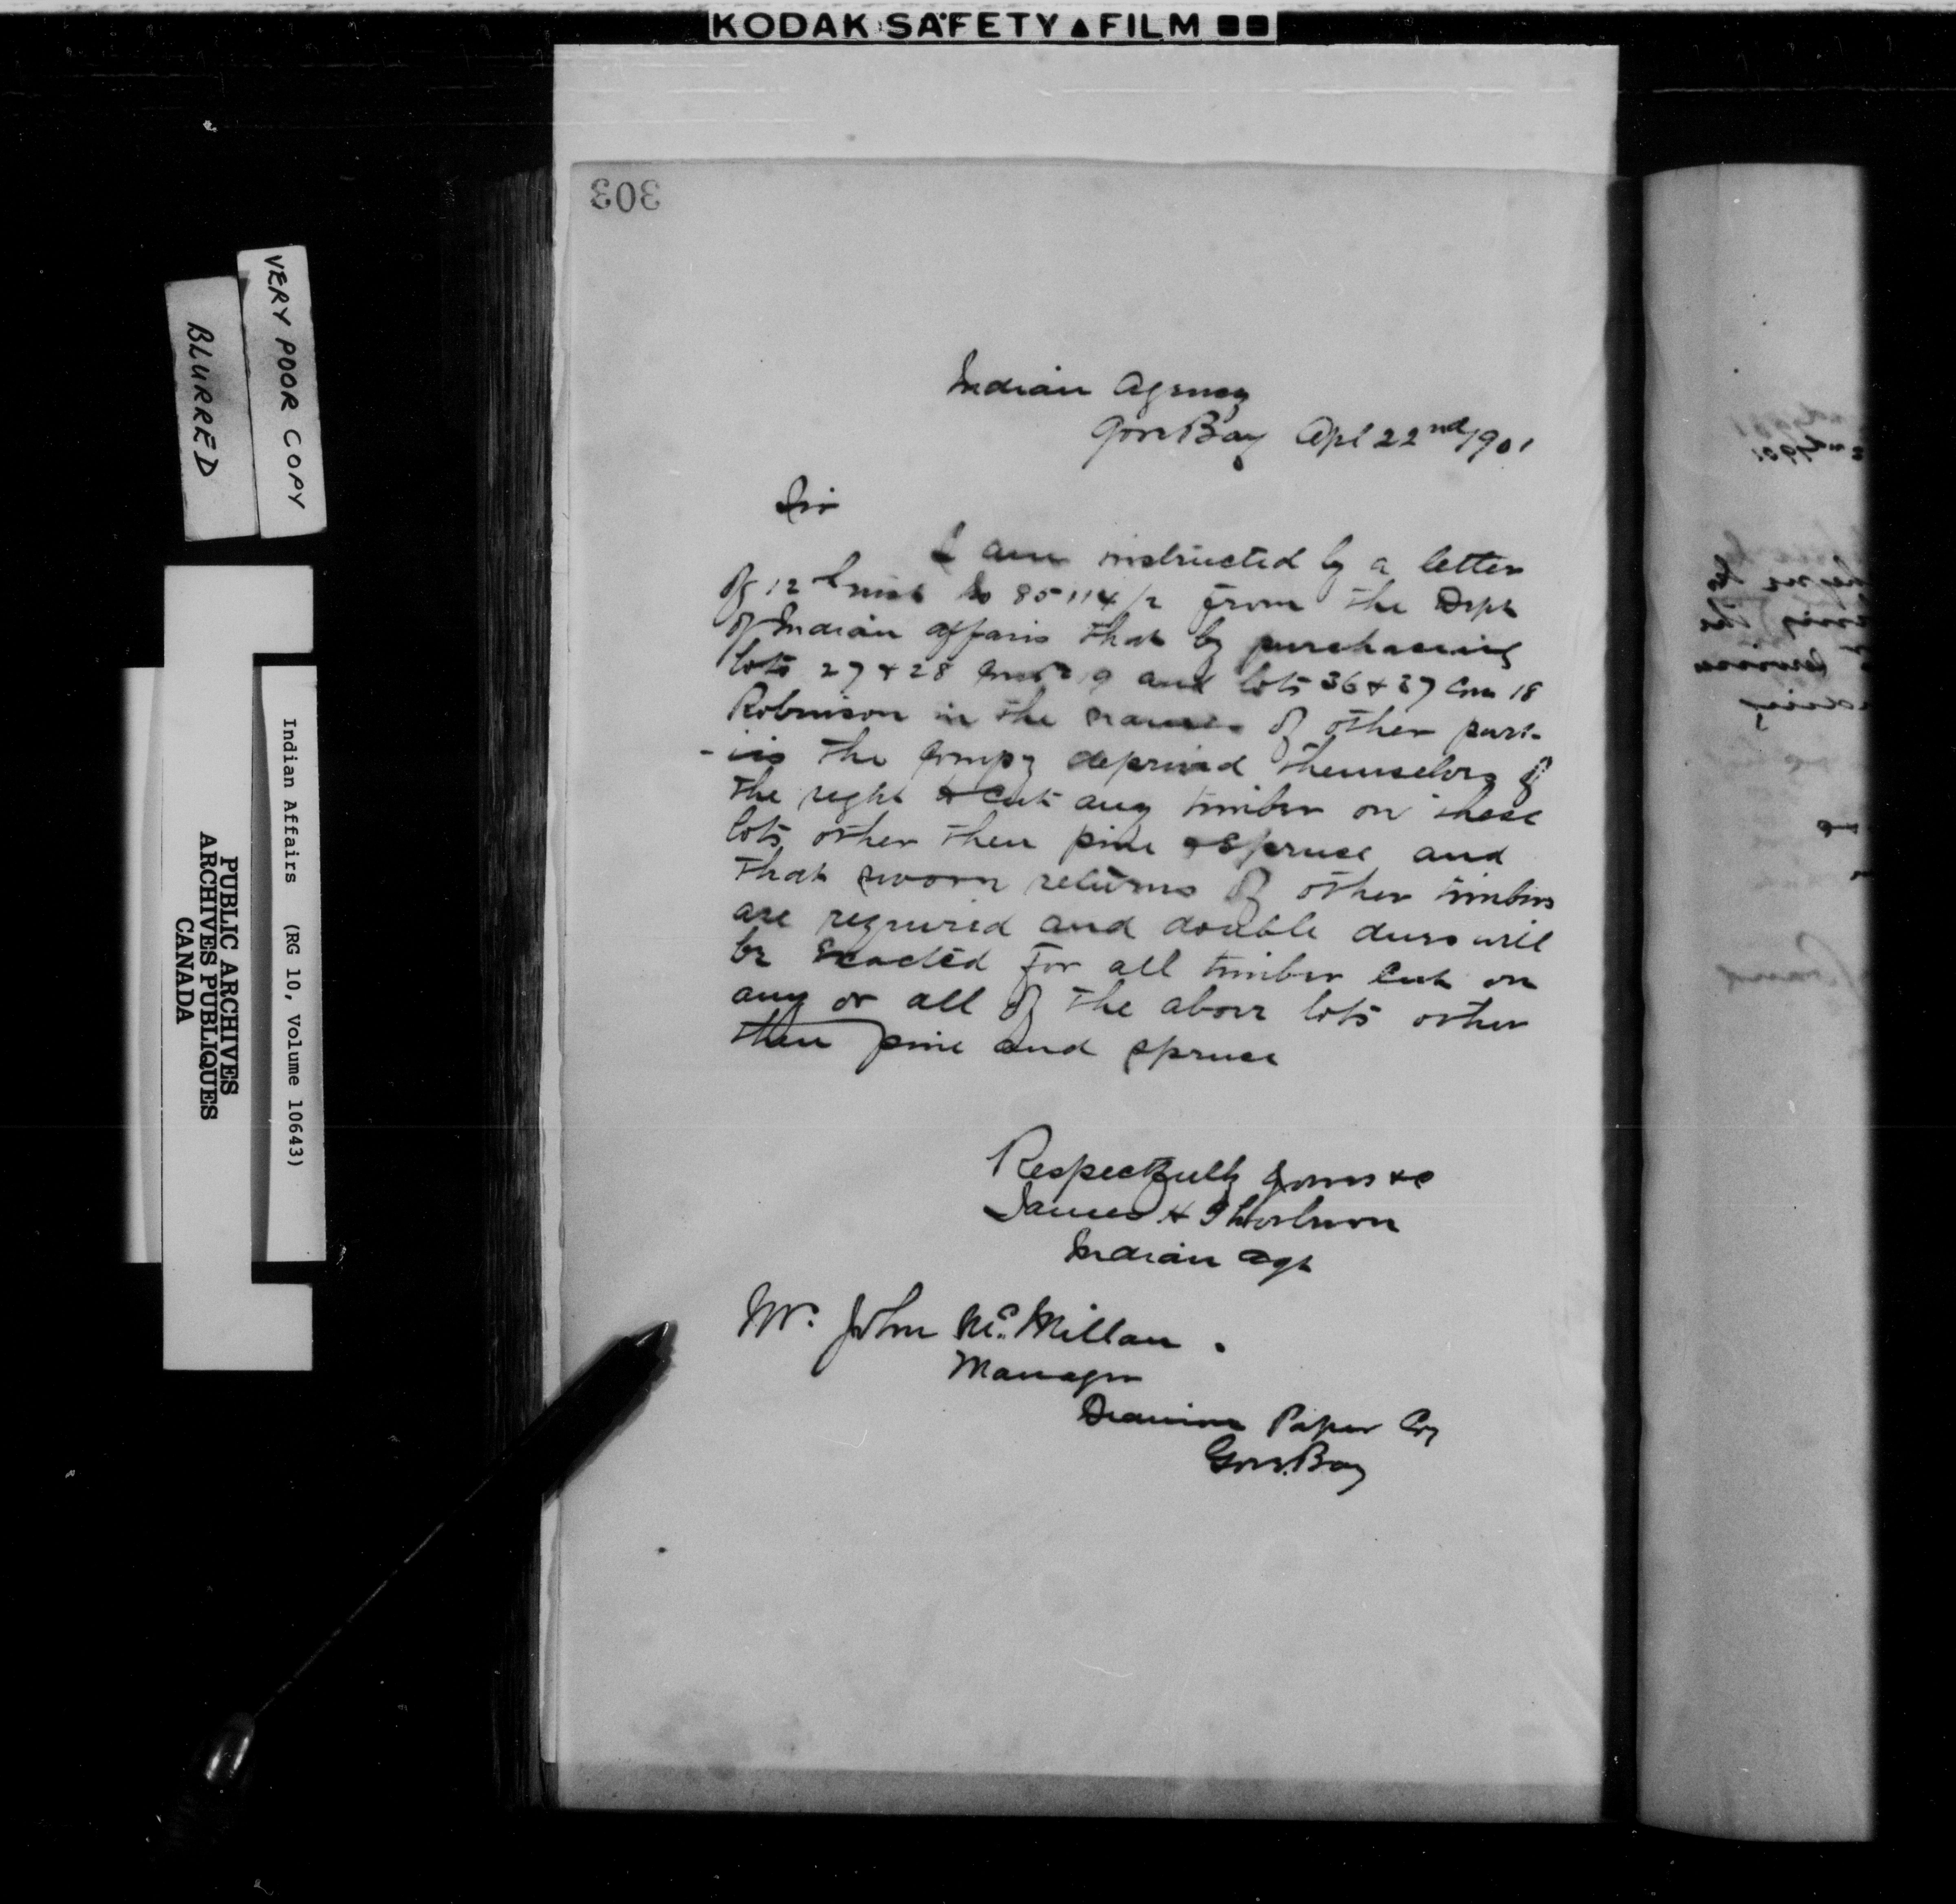 KODAK SAFETY ▲ FILM ■■
303
VERY POOR COPY
BLURRED
Indian Affairs (RG 10, Volume 10643)
PUBLIC ARCHIVES
ARCHIVES PUBLIQUES
CANADA
Indian Agency
Gore Bay Apl 22nd/901
Sir
I am instructed by a letter
of 12th inst No 85114/2 from the Dept
of Indian affairs that by purchasing
lots 27 & 28 Con 19 and lots 36 & 37 Con 18
Robinson in the names of other part-
-ies the Compy deprived themselves of
the right to cut any timber on these
lots other then pine & Spruce and
that sworn returns of other timber
are required and double dues will
be Exacted for all timber cut on
any or all of the above lots other
then pine and spruce
Respectfully yours &c
James H Thorburn
Indian Agt
Mr. John McMillan.
Manager
Paper Coy
Gore Bay